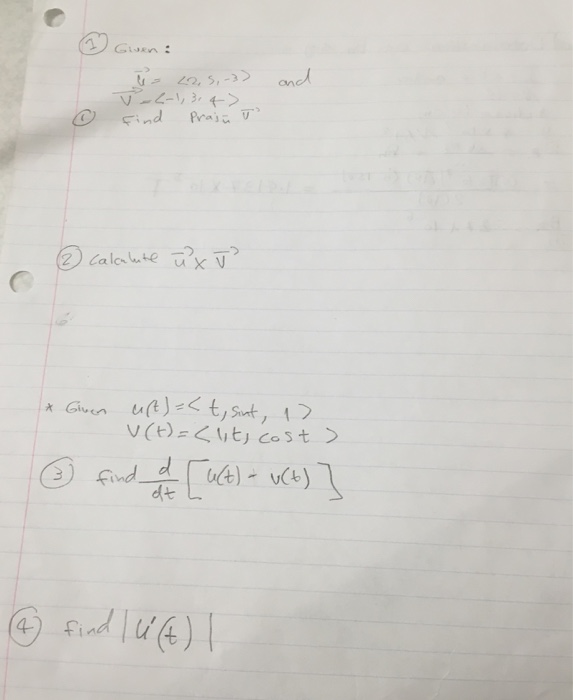 ① Given:
u⃗ = <2, 5, -3> and
v⃗ = <-1, 3, 4>
① Find Proj u⃗ v⃗
② Calculate u⃗ x v⃗
* Given u(t) = < t, sint, 1 >
v(t) = < 1, t, cost >
③ find d/dt [u(t) - v(t)]
④ find |u'(t)|